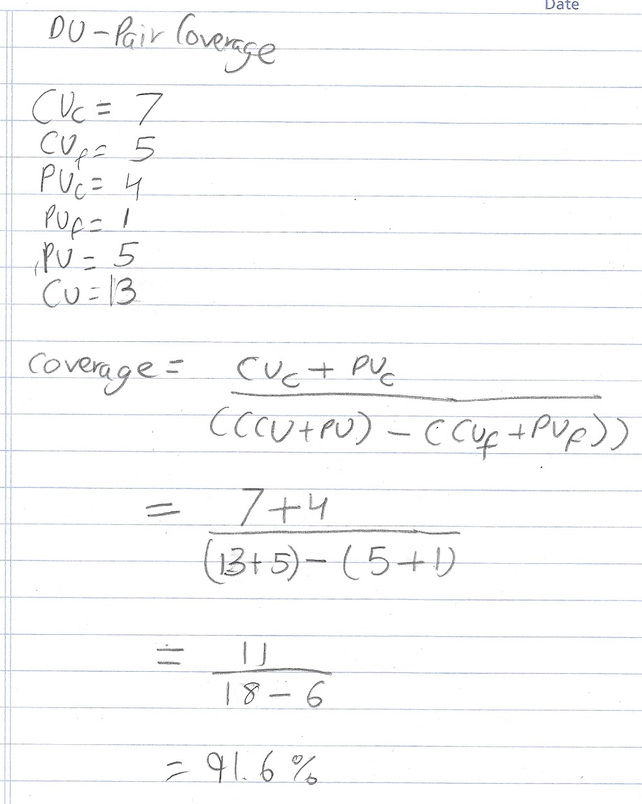 Date
DU-Pair Coverage
CUc = 7
CUf = 5
PUc = 4
PUf = 1
PU = 5
CU = 13
Coverage = CUc + PUc
(((CU+PU) - (CUf + PUf))
= 7+4
(13+5) - (5+1)
= 11
18 - 6
= 91.6 %